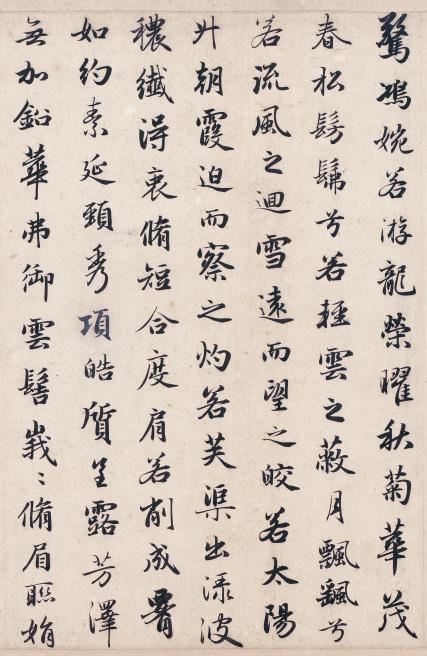 驚鴻婉若游龍榮曜秋菊華茂
春松髣髴兮若輕雲之蔽月飄颻兮
若流風之迴雪遠而望之皎若太陽
升朝霞迫而察之灼若芙渠出渌波
穠纖得衷脩短合度肩若削成腰
如約素延頸秀項皓質呈露芳澤
無加鉛華弗御雲髻峩〻脩眉聯娟